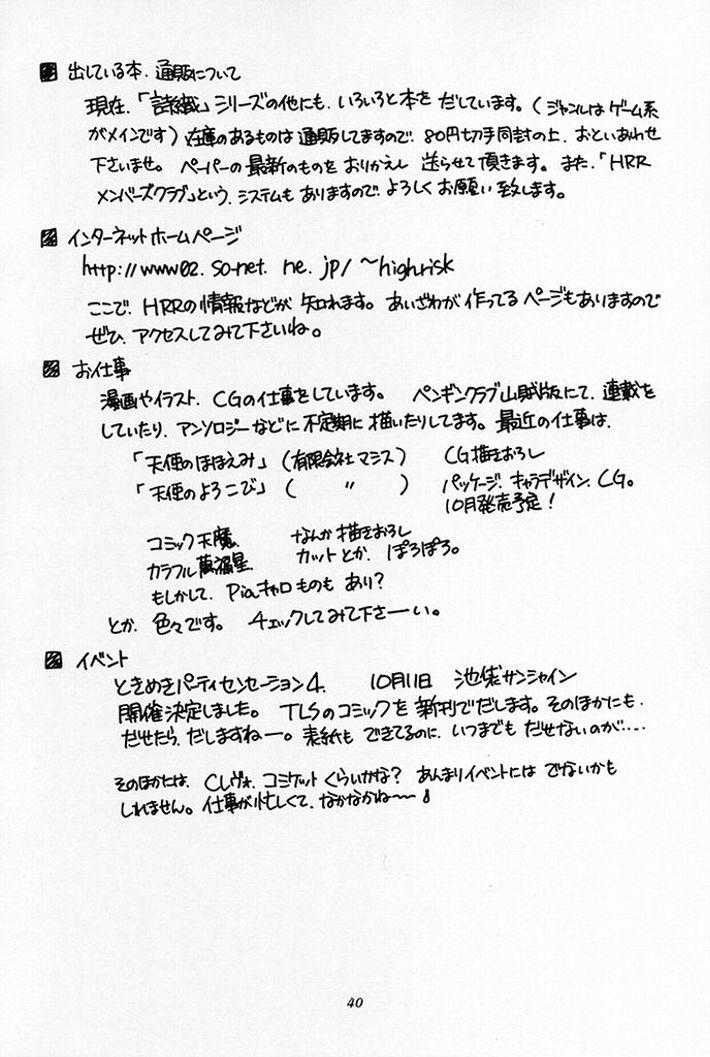 出している本、通販について
現在、「詩織」シリーズの他にも、いろいろと本を だしています。(ジャンルは ゲーム系
がメインです) 在庫のあるものは 通販してますので、80円切手同封の上、おといあわせ
下さいませ。 ペーパーの 最新のものを おりかえし 送らせて頂きます。 また、「HRR
メンバーズクラブ」という、システムも ありますので、よろしく お願い 致します。
インターネットホームページ
http://www02.so-net.ne.jp/~highrisk
ここで、HRRの情報などが 知れます。 あいざわが 作ってる ページもありますので
ぜひ、アクセスしてみて下さいね。
お仕事
漫画やイラスト、CGの仕事をしています。 ペンギンクラブ山賊版にて、連載を
していたり、アンソロジーなどに 不定期に 描いたりしてます。最近の仕事は、
「天使のほほえみ」 (有限会社マシス) CG描きおろし
「天使のよろこび」 ( 〃 ) パッケージ、キャラデザイン、CG。
10月発売予定!
コミック天魔、 なんか描きおろし
カラフル萬福星、 カットとか、ぽろぽろ。
もしかして、Piaキャロものも あり?
とか、色々です。 チェックしてみて下さーい。
イベント
ときめきパーティセンセーション4、 10月11日 池袋サンシャイン
開催決定しました。 TLSのコミックを 新刊でだします。そのほかにも、
だせたら、だしますねー。表紙も できてるのに、いつまでも だせないのが‥‥
そのほかには、Cレヴォ、コミケット くらいかな? あんまりイベントには でないかも
しれません。仕事が忙しくて、なかなかね〜〜
40